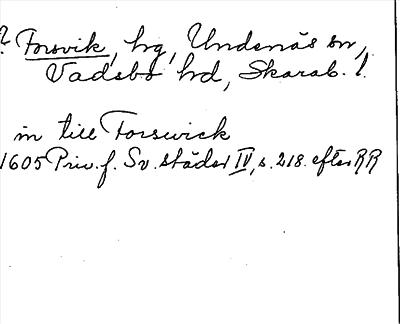 ? Forsvik, hg, Undenäs sn,
Vadsbo hd, Skarab. l.
in till Forswick
1605 Priv. f. Sv. städer IV, s. 218. efter RR